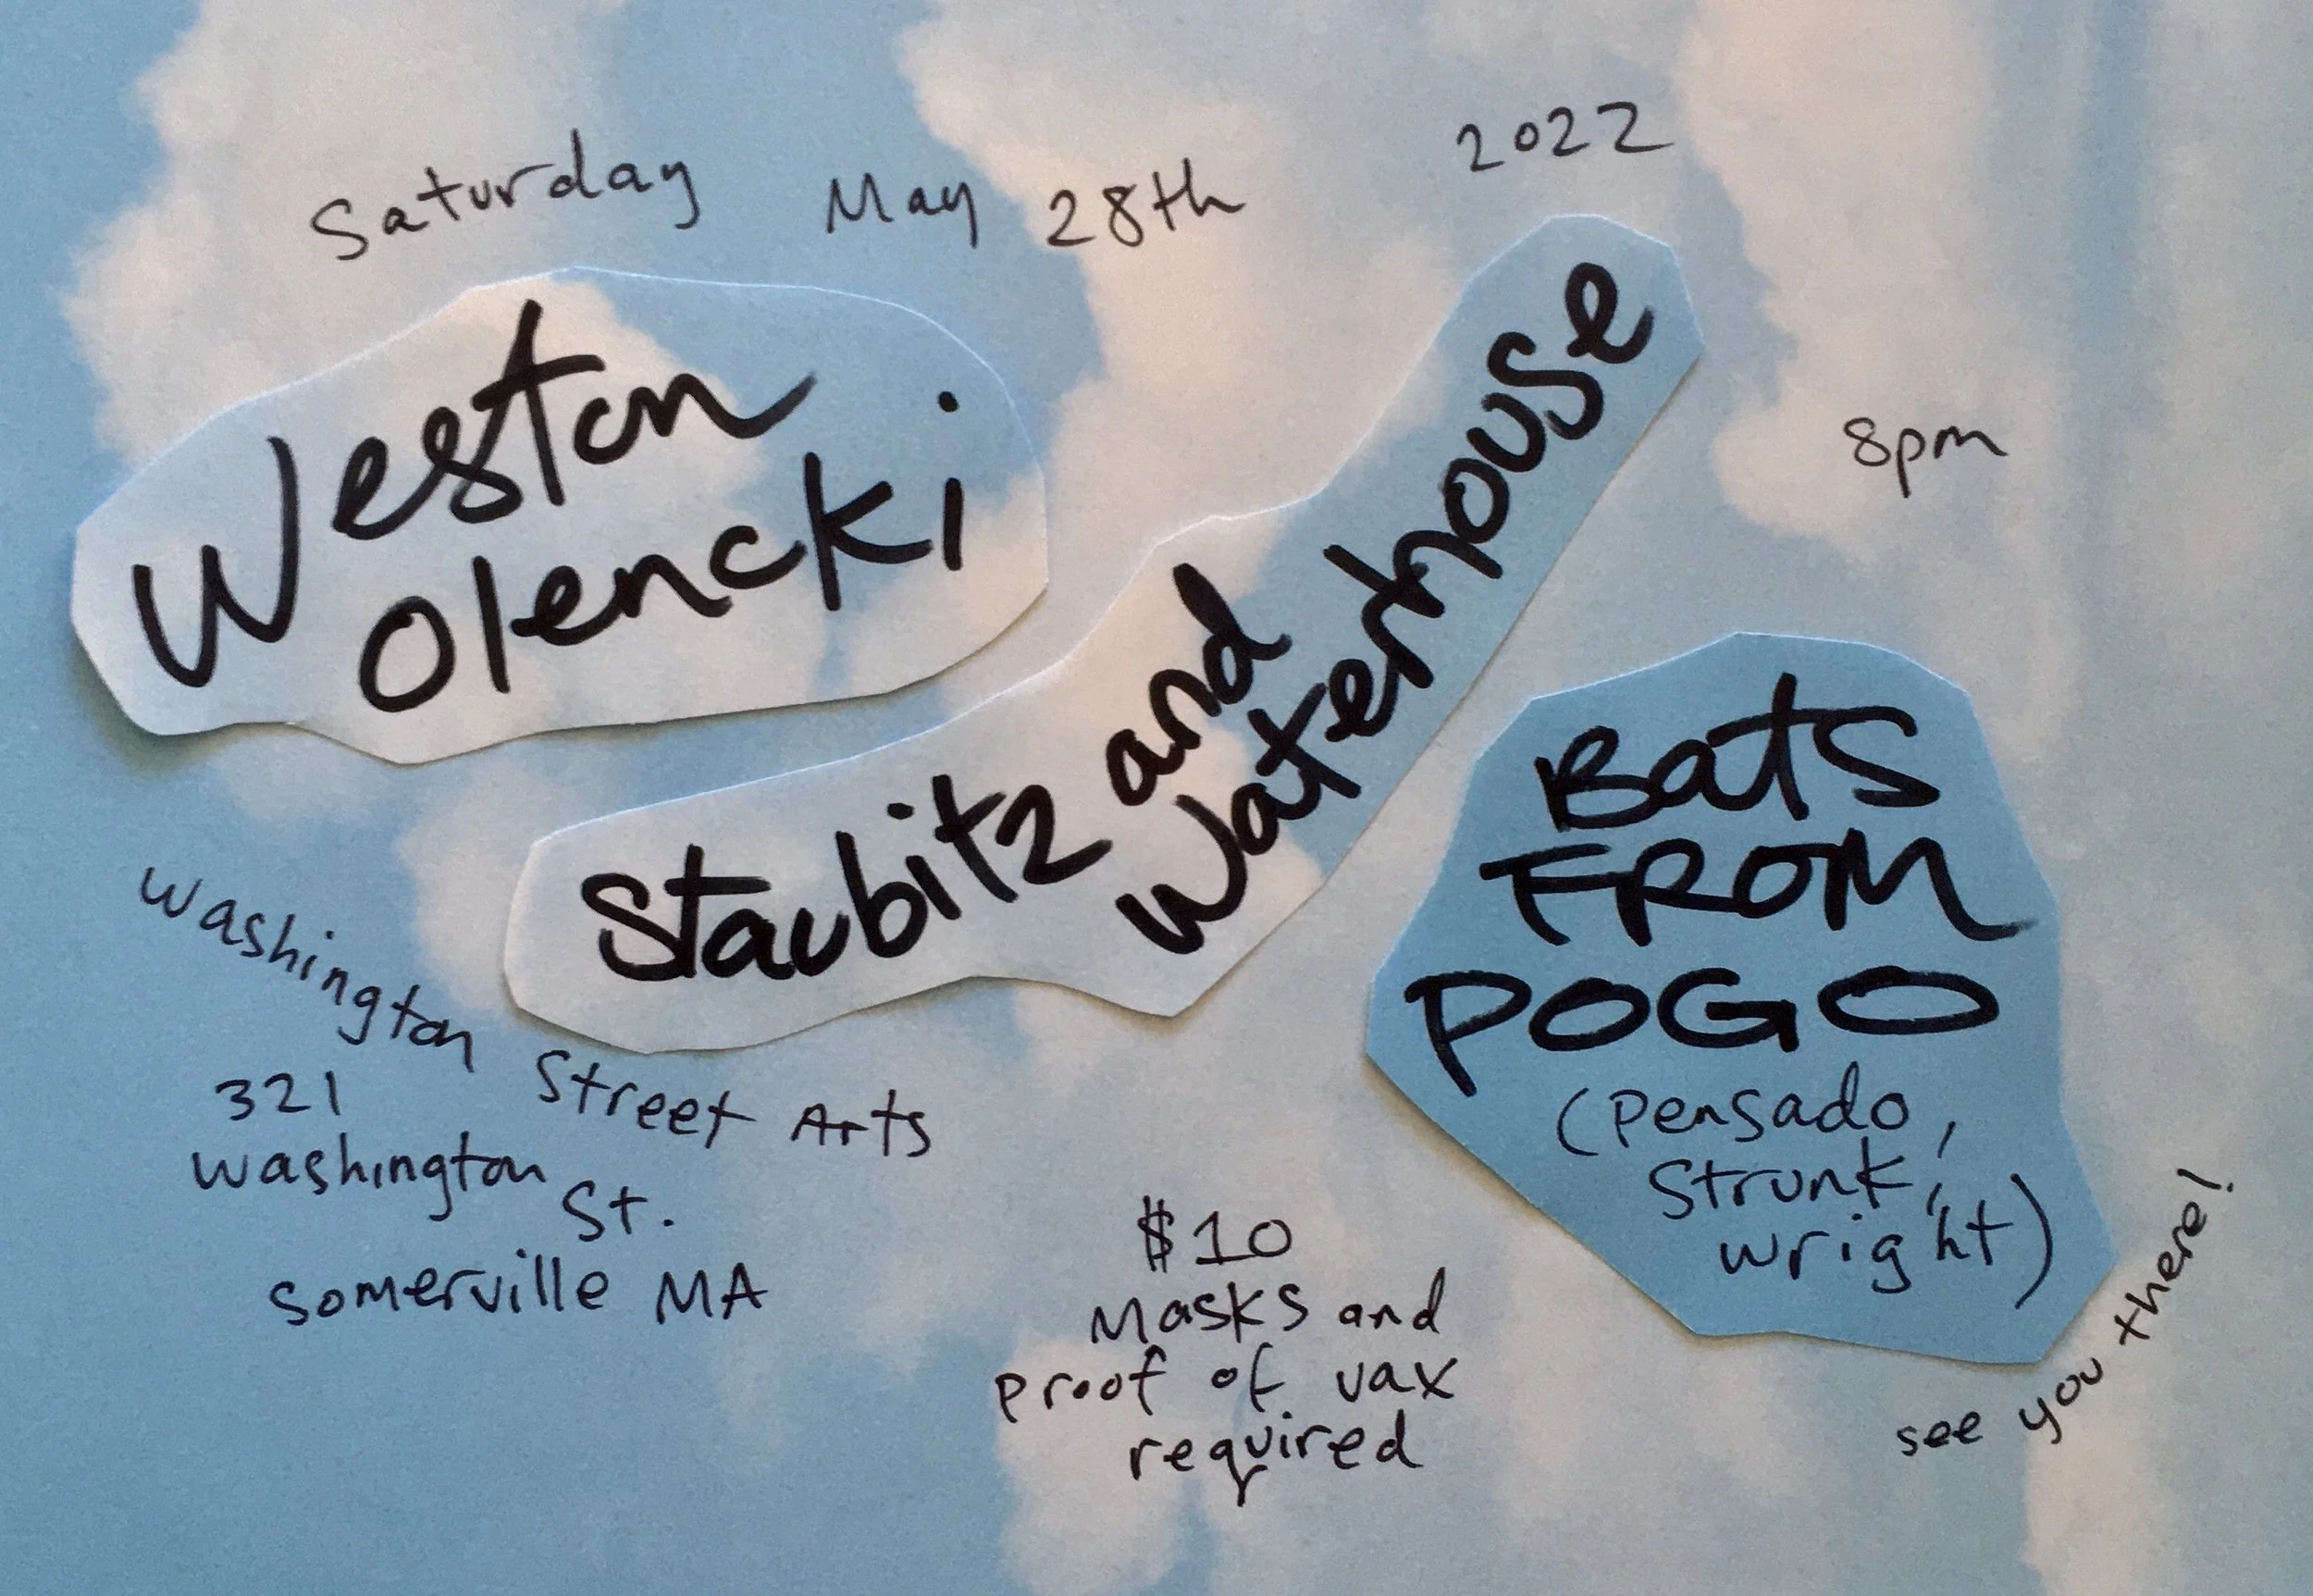 Saturday May 28th 2022
Weston
Olencki
8pm
Staubitz and
Waterhouse
Bats
FROM
POGO
(Pensado,
Strunk,
Wright)
Washington Street Arts
321
Washington St.
Somerville MA
$10
Masks and
proof of vax
required
see you there!